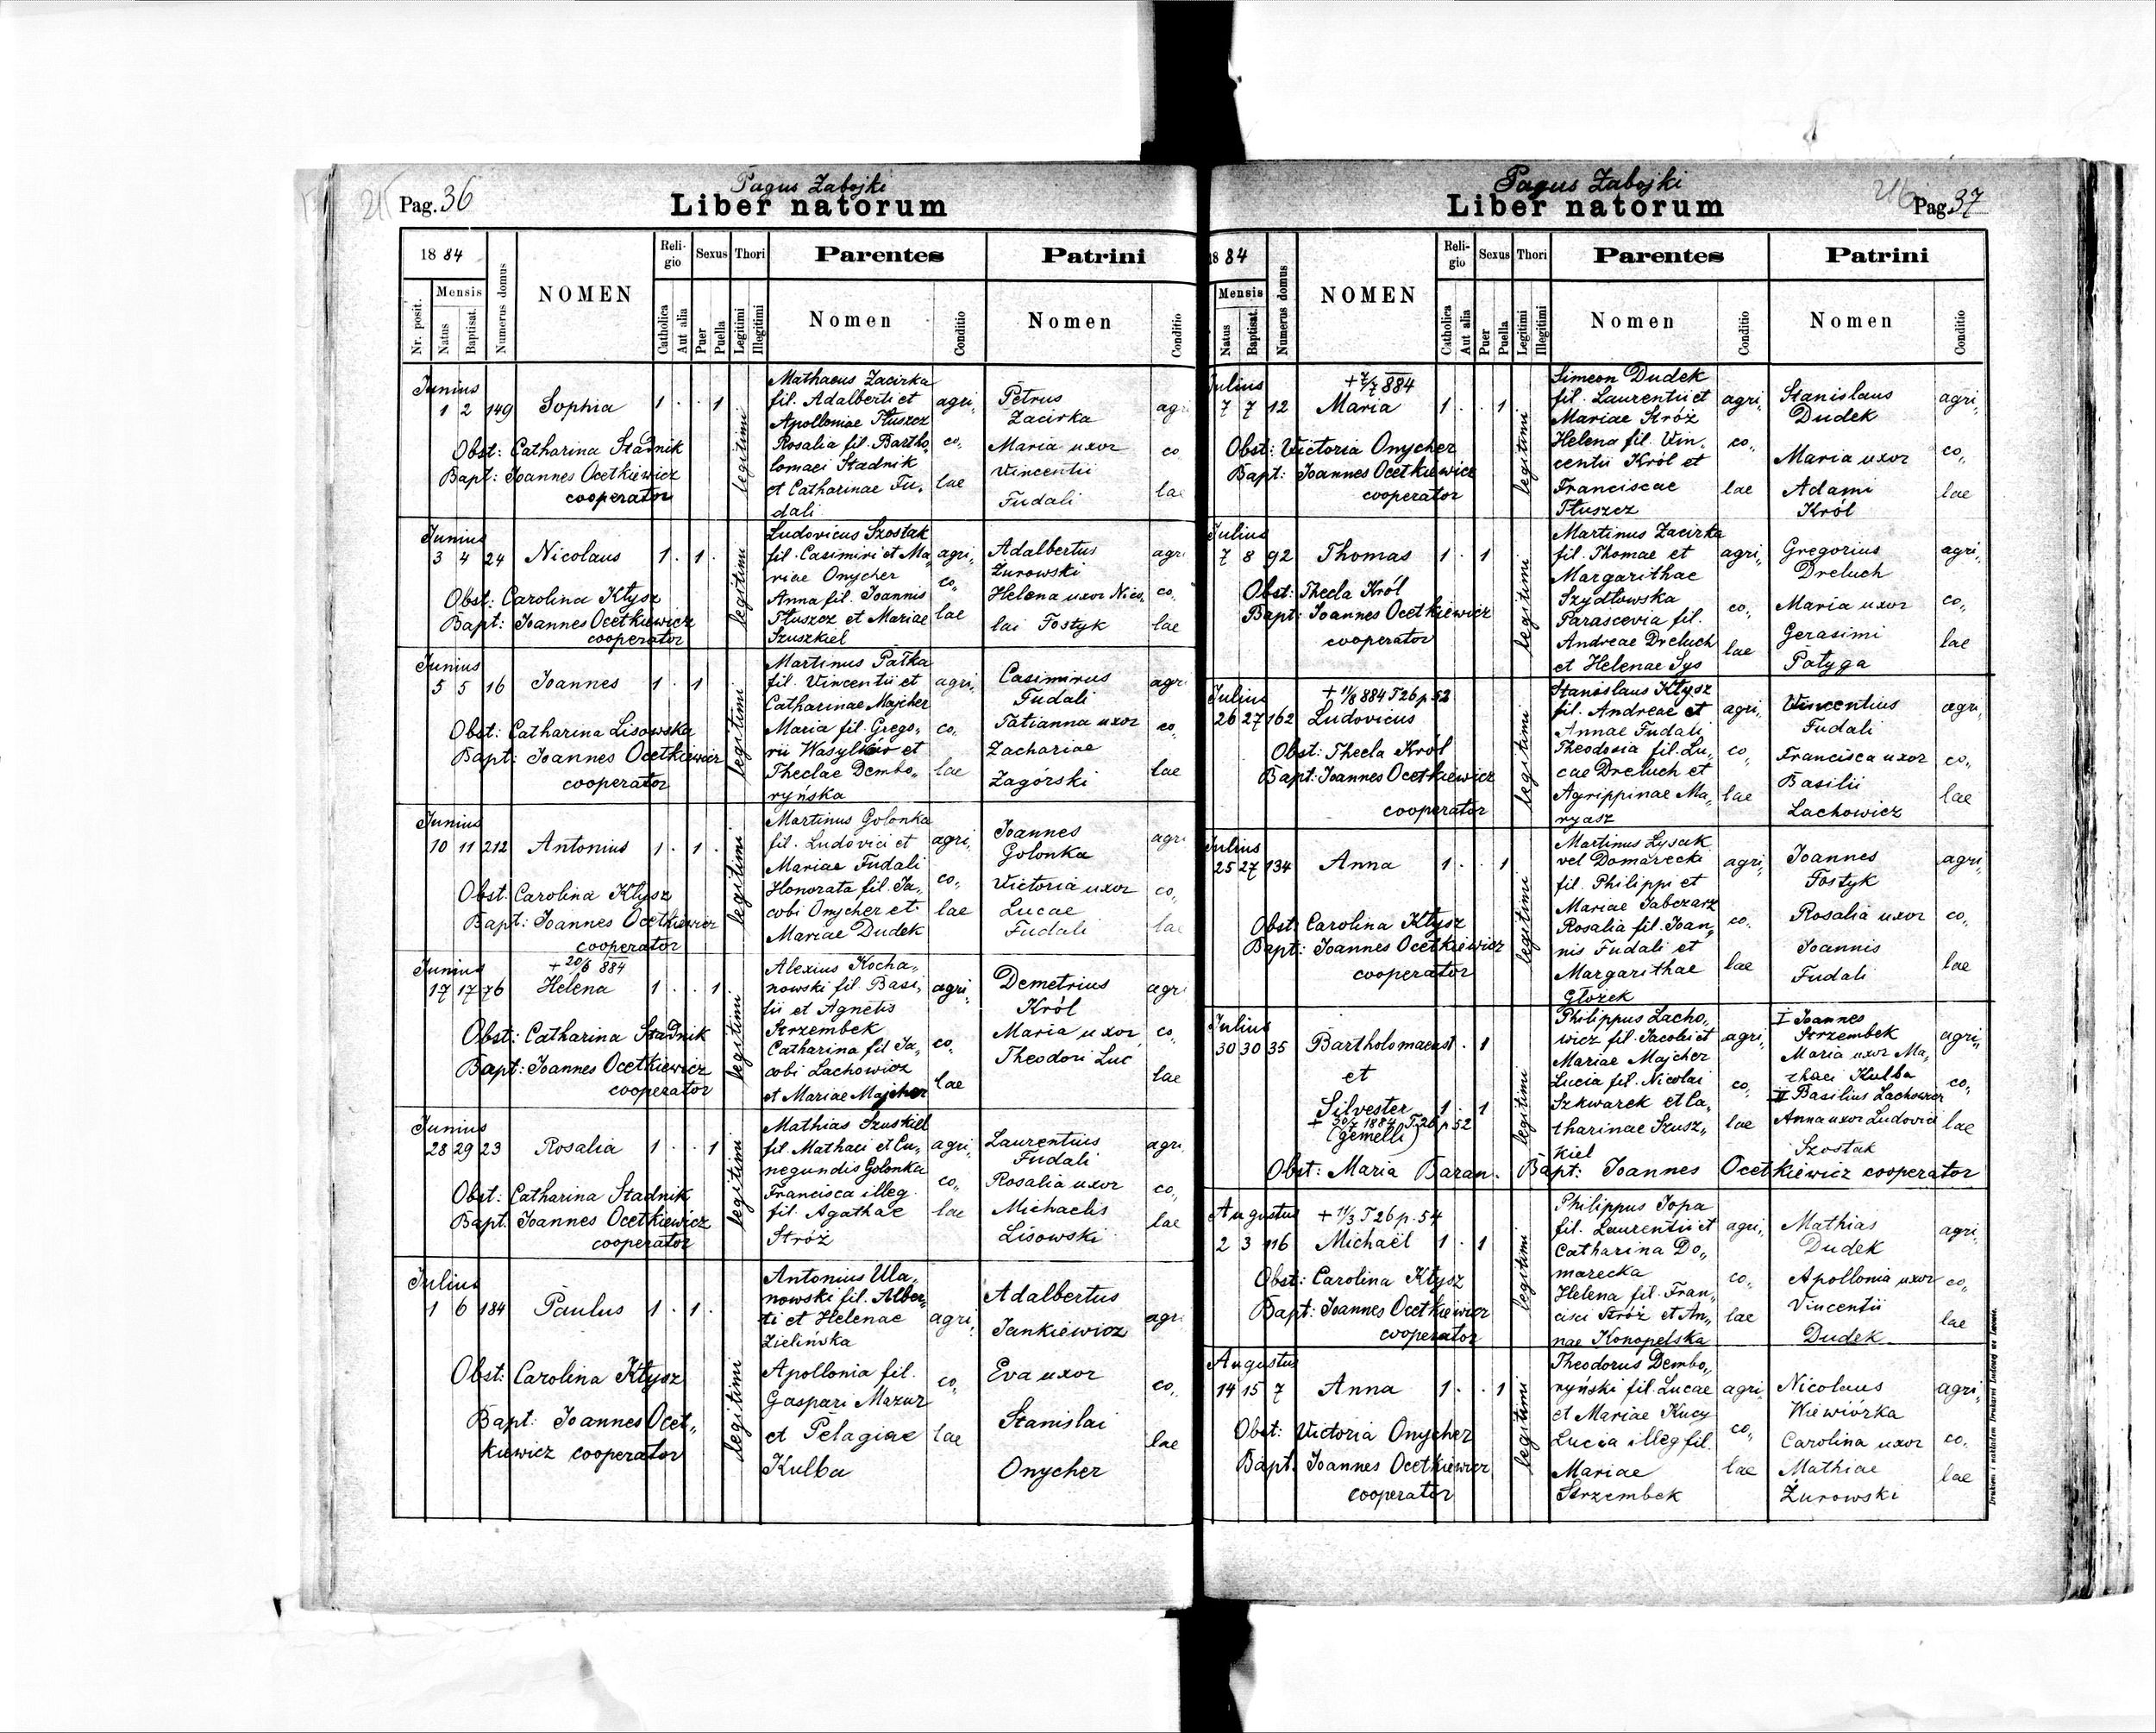 Pag. 36
Pagus Zabojki
Liber natorum
1884
Nr. posit.
Mensis
Natus
Baptisat.
Numerus domus
NOMEN
Religio
Catholica
Aut alia
Sexus
Puer
Puella
Thori
Legitimi
Illegitimi
Parentes
Nomen
Conditio
Patrini
Nomen
Conditio
Junius
1 2 149 Sophia 1 . . 1
Obst: Catharina Stadnik
Bapt: Joannes Ocetkiewicz
cooperator
legitimi
Mathaeus Zacirka
fil. Adalberti et
Apolloniae Tłuszcz
Rosalia fil. Bartho„
lomaei Stadnik
et Catharinae Fu„
dali
agri„
co„
lae
Petrus
Zacirka
Maria uxor
Vincentii
Fudali
agri
co
lae
Junius
3 4 24 Nicolaus 1 . 1 .
Obst: Carolina Kłysz
Bapt: Joannes Ocetkiewicz
cooperator
legitimi
Ludovicus Szostak
fil. Casimiri et Ma„
riae Onycher
Anna fil. Joannis
Tłuszcz et Mariae
Szuszkiel
agri„
co„
lae
Adalbertus
Żurowski
Helena uxor Nico„
lai Fostyk
agri
co„
lae
Junius
5 5 16 Joannes 1 . 1
Obst: Catharina Lisowska
Bapt: Joannes Ocetkiewicz
cooperator
legitimi
Martinus Pałka
fil. Vincentii et
Catharinae Majcher
Maria fil. Grego„
rii Wasylków et
Theclae Dembo„
ryńska
agri„
co„
lae
Casimirus
Fudali
Tatianna uxor
Zachariae
Zagórski
agri
co„
lae
Junius
10 11 212 Antonius 1 . 1 .
Obst. Carolina Kłysz
Bapt: Joannes Ocetkiewicz
cooperator
legitimi
Martinus Golonka
fil. Ludovici et
Mariae Fudali
Honorata fil. Ja„
cobi Onycher et
Mariae Dudek
agri„
co„
lae
Joannes
Golonka
Victoria uxor
Lucae
Fudali
agri
co„
lae
Junius
+ 20/6 884
17 17 76 Helena 1 . . 1
Obst: Catharina Stadnik
Bapt: Joannes Ocetkiewicz
cooperator
legitimi
Alexius Kocha„
nowski fil. Basi„
lii et Agnetis
Strzembek
Catharina fil Ja„
cobi Lachowicz
et Mariae Majcher
agri„
co„
lae
Demetrius
Król
Maria uxor
Theodori Luc
agri
co„
lae
Junius
28 29 23 Rosalia 1 . . 1
Obst: Catharina Stadnik
Bapt. Joannes Ocetkiewicz
cooperator
legitimi
Mathias Szuskiel
fil. Mathaei et Cu„
negundis Golonka
Francisca illeg.
fil. Agathae
Stróż
agri„
co„
lae
Laurentius
Fudali
Rosalia uxor
Michaelis
Lisowski
agri
co„
lae
Julius
1 6 184 Paulus 1 . 1 .
Obst: Carolina Kłysz
Bapt: Joannes Ocet„
kiewicz cooperator
legitimi
Antonius Ula„
nowski fil. Alber„
ti et Helenae
Zielińska
Apollonia fil.
Gaspari Mazur
et Pelagiae
Kulba
agri„
co„
lae
Adalbertus
Jankiewicz
Eva uxor
Stanislai
Onycher
agri
co„
lae
Pagus Zabojki
Liber natorum
Pag. 37
1884
Mensis
Natus
Baptisat.
Numerus domus
NOMEN
Religio
Catholica
Aut alia
Sexus
Puer
Puella
Thori
Legitimi
Illegitimi
Parentes
Nomen
Conditio
Patrini
Nomen
Conditio
Julius
+ 7/7 884
7 7 12 Maria 1 . . 1
Obst: Victoria Onycher
Bapt: Joannes Ocetkiewicz
cooperator
legitimi
Simeon Dudek
fil. Laurentii et
Mariae Stróż
Helena fil. Vin„
centii Król et
Franciscae
Tłuszcz
agri„
co„
lae
Stanislaus
Dudek
Maria uxor
Adami
Król
agri„
co„
lae
Julius
7 8 92 Thomas 1 . 1
Obst: Thecla Król
Bapt: Joannes Ocetkiewicz
cooperator
legitimi
Martinus Zacirka
fil. Thomae et
Margarithae
Szydłowska
Parascevia fil.
Andreae Dreluch
et Helenae Sys
agri„
co„
lae
Gregorius
Dreluch
Maria uxor
Gerasimi
Patyga
agri„
co„
lae
Julius
+ 11/8 884 T26 p. 52
26 27 162 Ludovicus
Obst: Thecla Król
Bapt: Joannes Ocetkiewicz
cooperator
legitimi
Stanislaus Kłysz
fil. Andreae et
Annae Fudali
Theodosia fil. Lu„
cae Dreluch et
Agrippinae Ma„
ryasz
agri„
co„
lae
Vincentius
Fudali
Francisca uxor
Basilii
Lachowicz
agri„
co„
lae
Julius
25 27 134 Anna 1 . . 1
Obst: Carolina Kłysz
Bapt: Joannes Ocetkiewicz
cooperator
legitimi
Martinus Łysak
vel Domarecki
fil. Philippi et
Mariae Jabczarz
Rosalia fil. Joan„
nis Fudali et
Margarithae
Głożek
agri„
co„
lae
Joannes
Fostyk
Rosalia uxor
Joannis
Fudali
agri„
co„
lae
Julius
30 30 35 Bartholomaeus 1 . 1
et
Silvester 1 . 1
+ 30/7 1884 T.26 p 52
(gemelli)
legitimi
Philippus Lacho„
wicz fil. Jacobi et
Mariae Majcher
Lucia fil. Nicolai
Szkwarek et Ca„
tharinae Szusz„
kiel
agri„
co„
lae
I Joannes
Strzembek
Maria uxor Ma„
thaei Kulba
II Basilius Lachowicz
Anna uxor Ludovici
Szostak
agri„
co„
lae
Obst: Maria Baran. Bapt: Joannes Ocetkiewicz cooperator
Augustus + 11/3 T26 p. 54
2 3 116 Michaël 1 . 1
Obst: Carolina Kłysz
Bapt: Joannes Ocetkiewicz
cooperator
legitimi
Philippus Jopa
fil. Laurentii et
Catharina Do„
marecka
Helena fil. Fran„
cisci Stróż et An„
nae Konopelska
agri„
co„
lae
Mathias
Dudek
Apollonia uxor
Vincentii
Dudek
agri„
co„
lae
Augustus
14 15 7 Anna 1 . . 1
Obst: Victoria Onycher
Bapt. Joannes Ocetkiewicz
cooperator
legitimi
Theodorus Dembo„
ryński fil. Lucae
et Mariae Kucy
Lucia illeg fil.
Mariae
Strzembek
agri„
co„
lae
Nicolaus
Wiewiórka
Carolina uxor
Mathiae
Żurowski
agri„
co.
lae